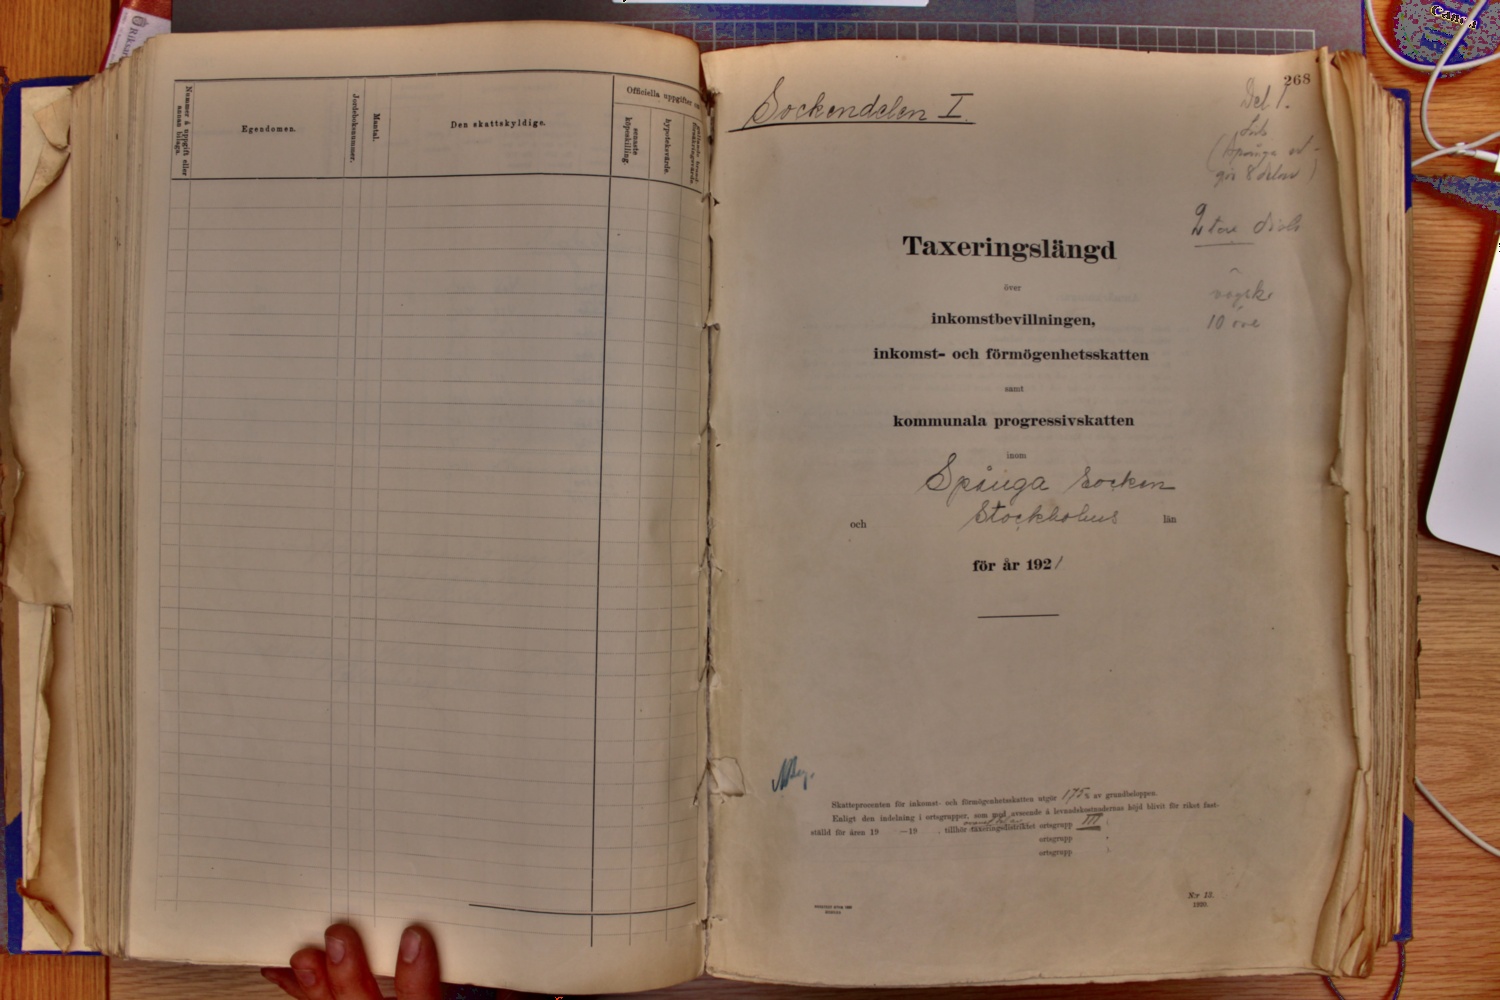 Nummer å uppgift eller
annan bilaga.
Egendomen.
Jordeboksnummer.
Mantal.
Den skattskyldige.
Officiella uppgifter
senaste
köpeskilling.
hypoteksvärde.
268
Sockendelen I.
Del I.
Taxeringslängd
över
inkomstbevillningen,
inkomst- och förmögenhetsskatten
samt
kommunala progressivskatten
inom
Spånga socken
och Stockholms län
för år 1921
10 öre
Skatteprocenten för inkomst- och förmögenhetsskatten utgör 175 % av grundbeloppen.
Enligt den indelning i ortsgrupper, som med avseende å levnadskostnadernas höjd blivit för riket fast-
ställd för åren 19 —19 , tillhör taxeringsdistriktet ortsgrupp III
ortsgrupp
ortsgrupp
N:r 12.
1920.
Canon